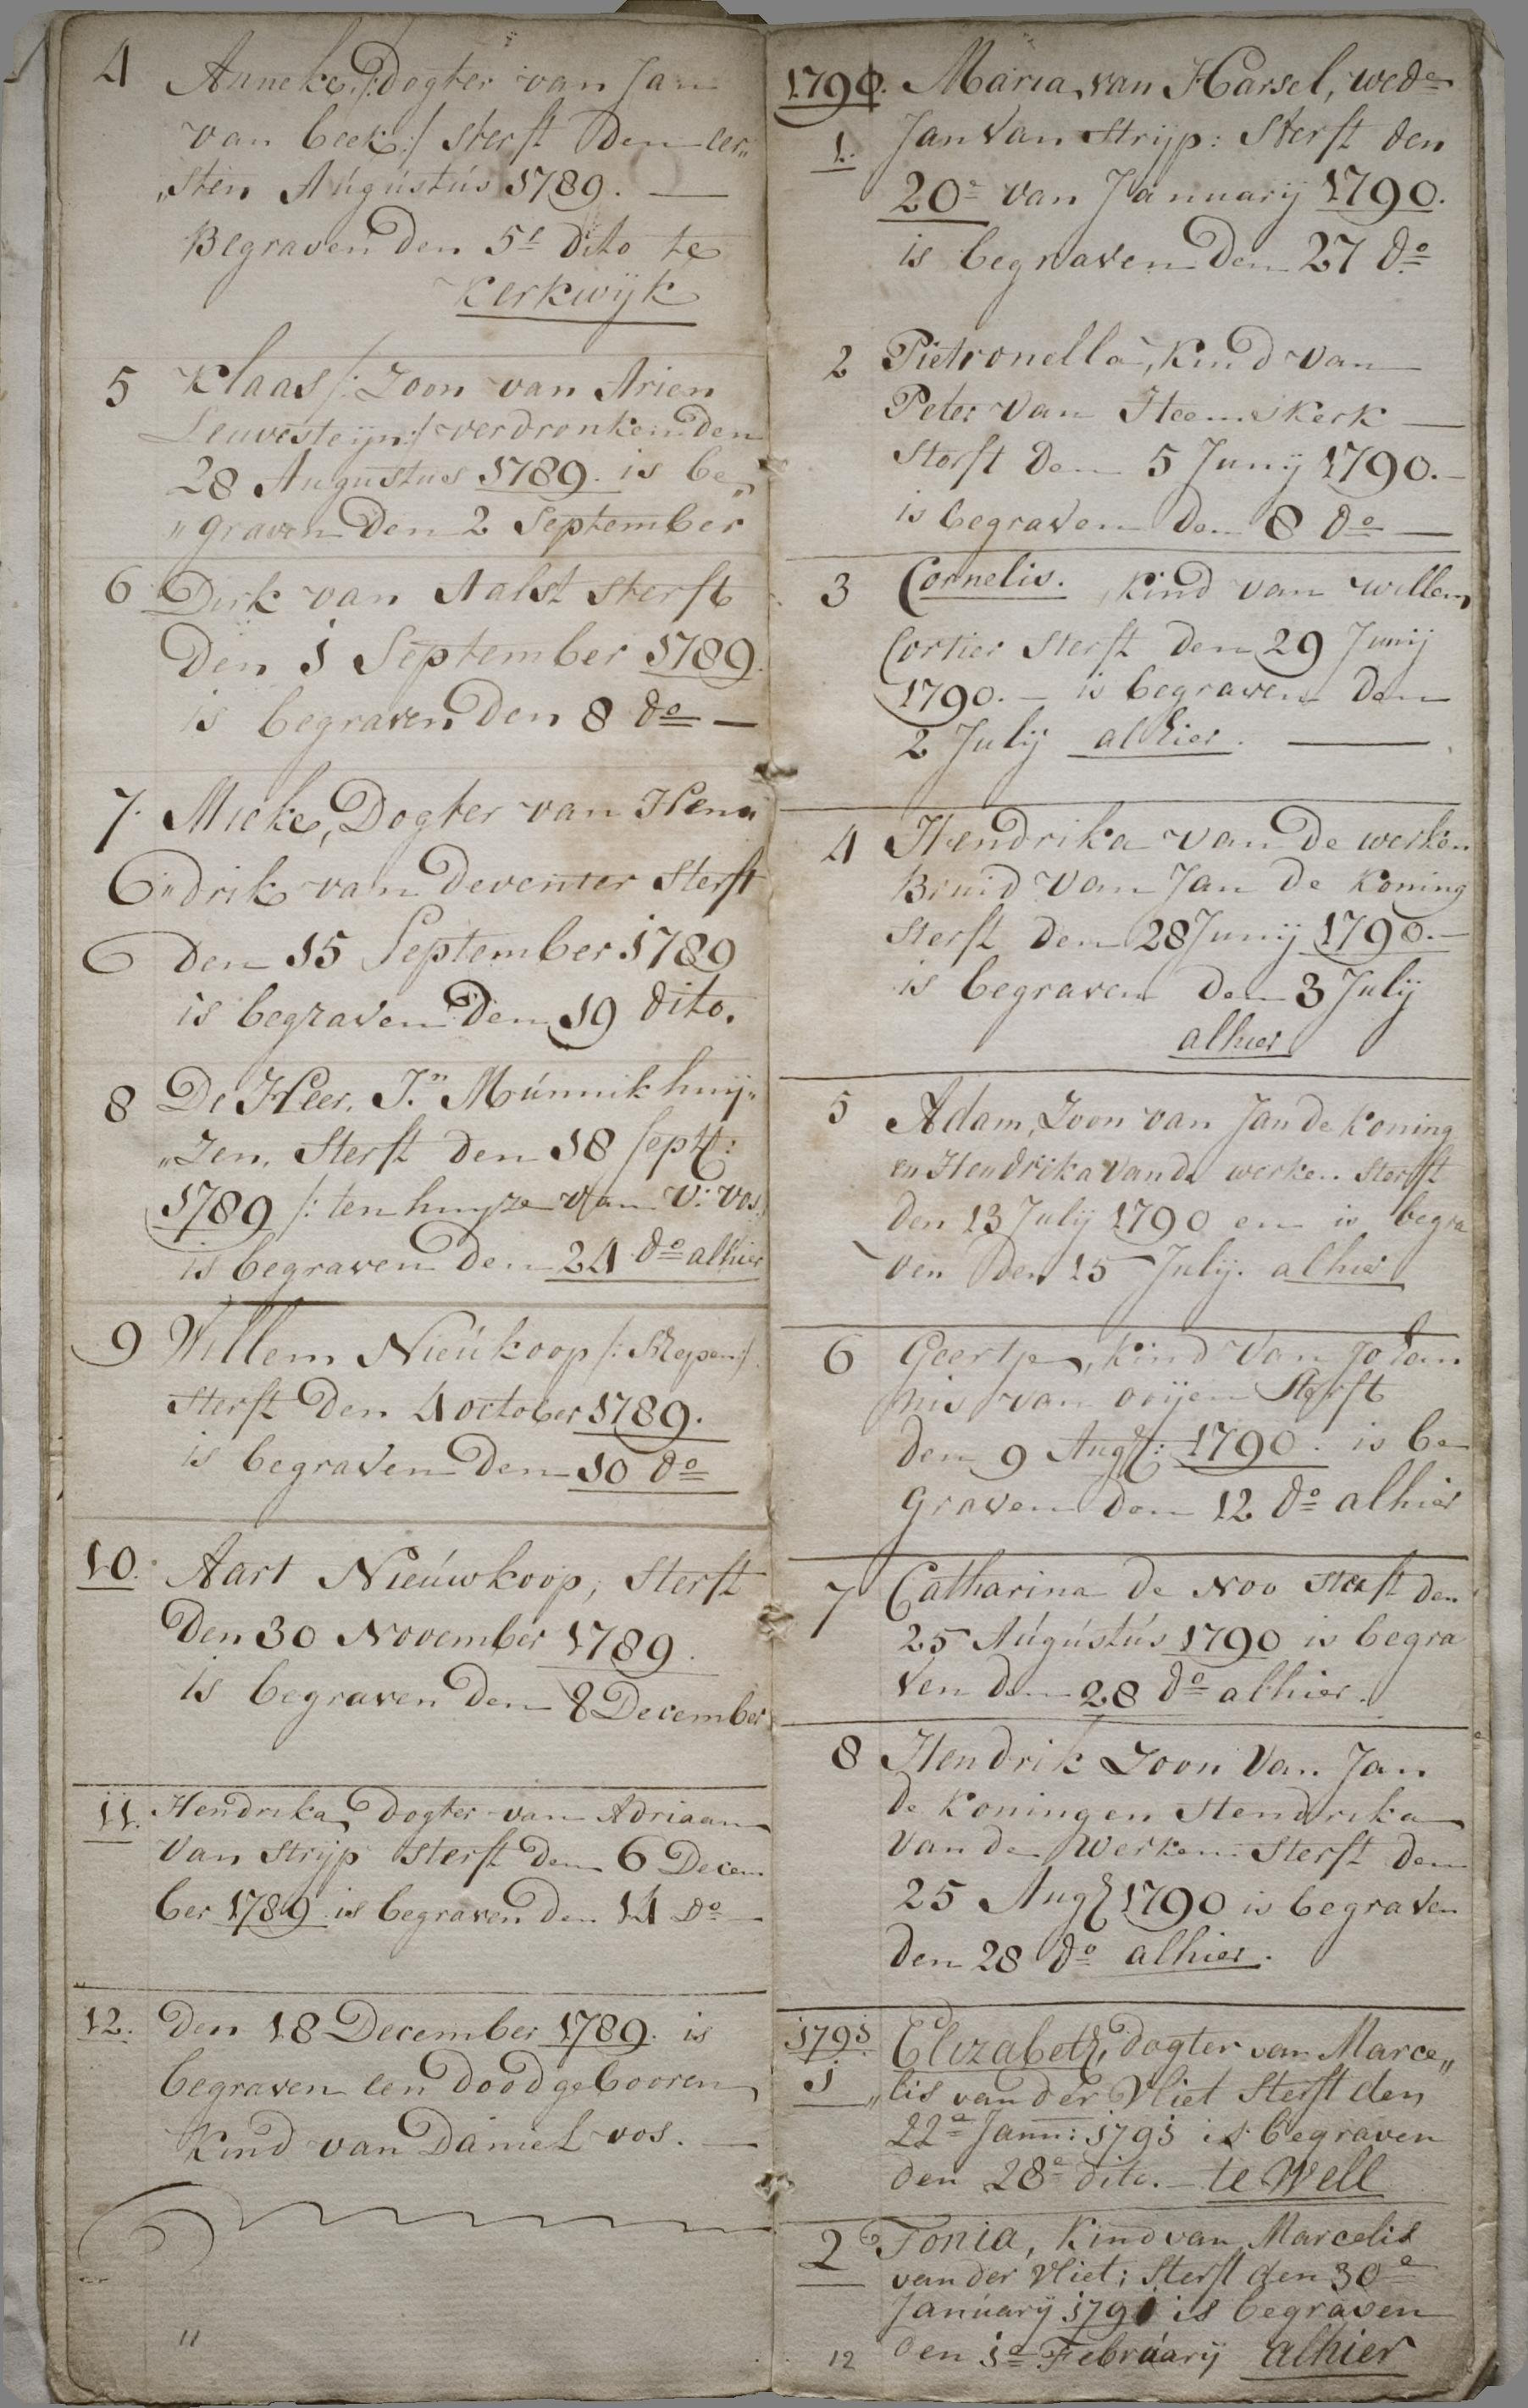 4 Anneke /: Dogter van Jan
van beek :/ sterft Den eer„
„sten Augústús 1789. —
Begraven Den 5e Dito te
Kerkwijk
5 Klaas /: Zoon van Arien
Leuvesteijn :/ verdronken Den
28 Augustus 1789. is be„
„graven Den 2 September
6 Dirk van Aalst sterft
Den 1 September 1789.
is begraven Den 8 do —
7. Mieke, Dogter van Hen„
„drik van Deventer sterft
Den 15 September 1789
is begraven Den 19 dito.
8 De Heer. J.n Múnnikhuij„
„zen. Sterft Den 18 septt:
1789 /: ten huyze van V: vos.
is begraven Den 24 do alhier
9 Willem Nieúkoop /: Skepen :/
sterft Den 4 october 1789.
is begraven Den 10 do
10. Aart Nieúwkoop, Sterft
Den 30 November 1789.
is begraven Den 8 December
11. Hendrika, Dogter van Adriaan
Van Strijp sterft Den 6 Decem
ber 1789. is begraven Den 14 Do —
12. Den 18 December 1789. is
begraven een doodgebooren
Kind van Daniel vos. —
11
1790. Maria van Harsel, wede
1. Jan Van Strijp: Sterft den
20e van Januarij 1790.
is begraven Den 27 do
2 Pietronella, Kind van
Peter Van Heemskerk —
Sterft Den 5 Junij 1790. —
is begraven Den 8 do —
3 Cornelis. Kind van willem
Cortier sterft Den 29 Junij
1790. — is begraven Den
2 Julij alhier. —
4 Hendrika van De werken
Bruid Van Jan De Koning
sterft Den 28 Junij 1790. —
is begraven Den 3 Julij
alhier
5 Adam, Zoon van Jan de Koning
en Hendrika Van de werken Sterft
Den 13 Julij 1790 en is begra
ven Den 15 Julij. alhier
6 Geertje, Kind Van Johan
nis van ooijen Sterft
Den 9 Augt: 1790. is be
graven Den 12 do alhier
7 Catharina de Noo sterft Den
25 Aúgústús 1790 is begra
ven Den 28 do alhier.
8 Hendrik Zoon Van Jan
de Koning en Hendrika
Van de Werken Sterft Den
25 Augt 1790 is begraven
Den 28 do alhier.
1791 Elizabeth, dogter van Marce„
1 „lis van der Vliet Sterft den
22e Jann: 1791 is begraven
den 28e dito. — te Well
2 Tonia, Kind van Marcelis
van der Vliet; Sterft den 30e
Janúarij 1791 is begraven
den 1e Februarij alhier
12